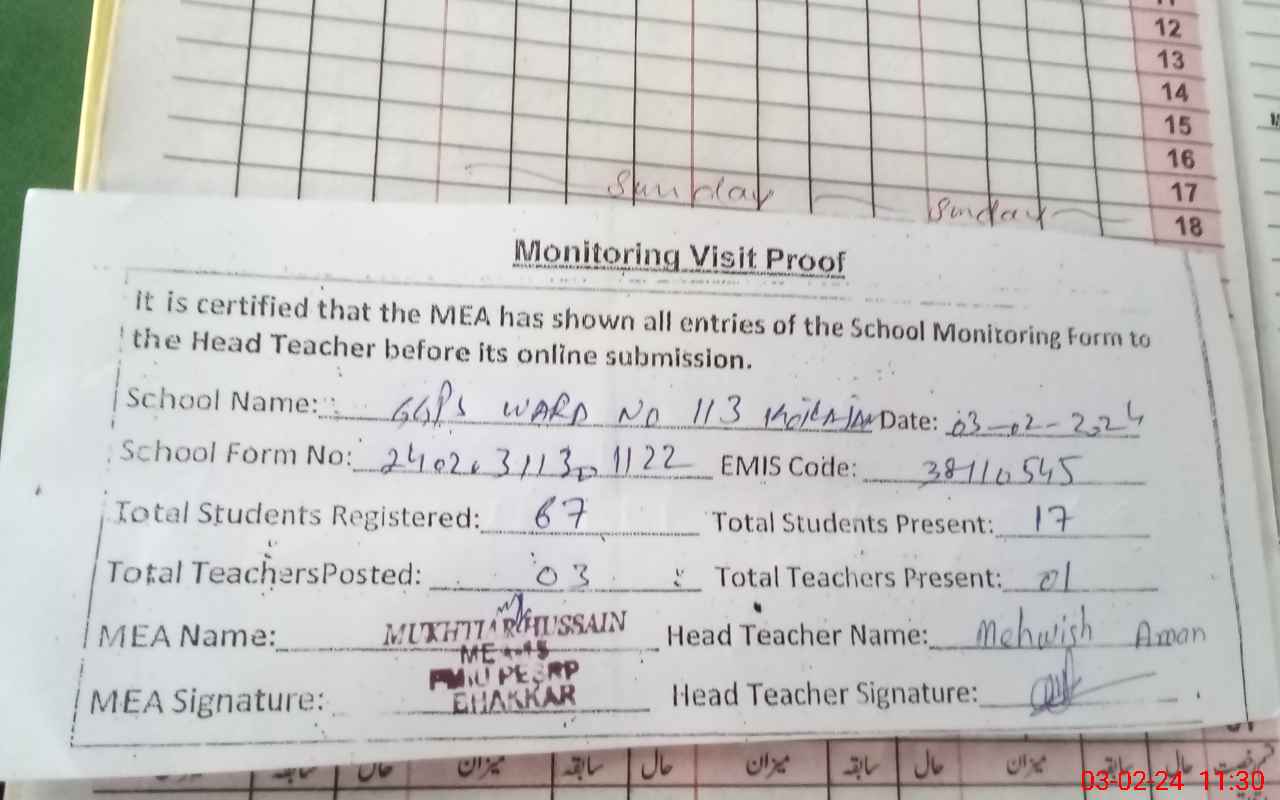 12
13
14
15
16
17
18
Sunday
Sunday
Monitoring Visit Proof
It is certified that the MEA has shown all entries of the School Monitoring Form to
the Head Teacher before its online submission.
School Name: GGPS WARD NO 113 Date: 03-02-2024
School Form No: EMIS Code: 38110545
Total Students Registered: 67 Total Students Present: 17
Total TeachersPosted: 03 Total Teachers Present: 01
MEA Name: MUKHTIAR HUSSAIN Head Teacher Name: Mehwish Aman
PMIU PESRP
BHAKKAR
MEA Signature: Head Teacher Signature:
میزان سابقہ حال میزان سابقہ حال میزان سابقہ حال میزان سابقہ حال
03-02-24 11:30